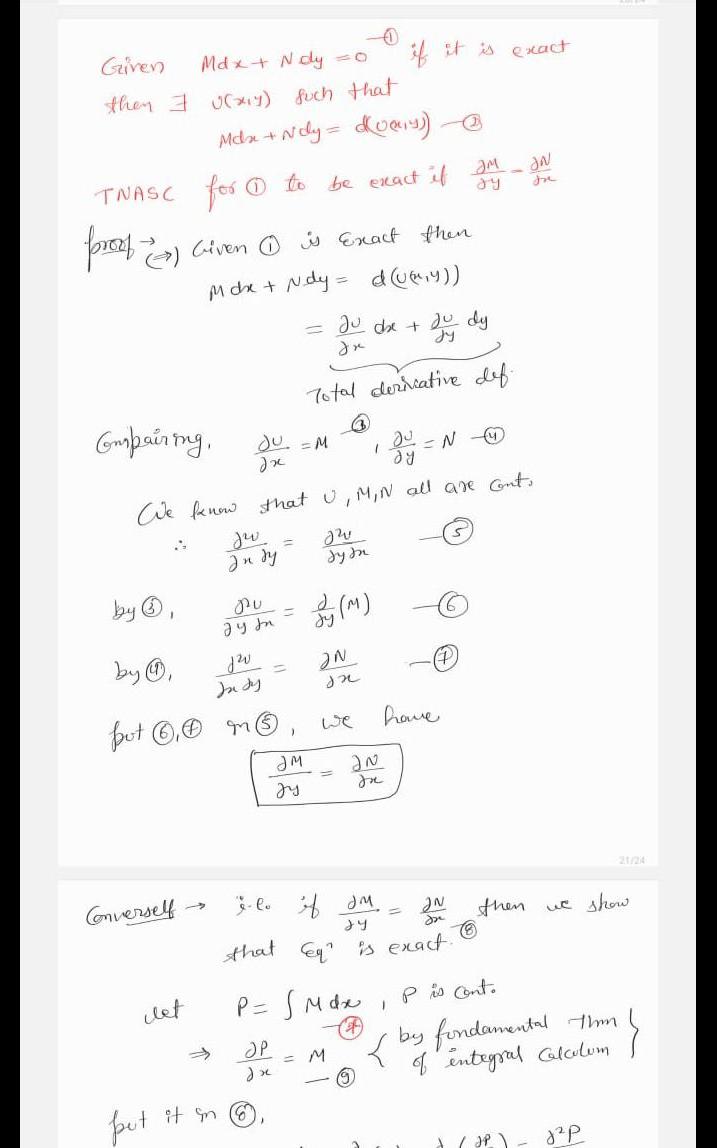 Given Mdx + Ndy = 0 —① if it is exact
then ∃ U(x,y) such that
Mdx + Ndy = d(U(x,y)) —②
TNASC for ① to be exact if ∂M/∂y - ∂N/∂x
proof → (⇒) Given ① is Exact then
Mdx + Ndy = d(U(x,y))
= ∂U/∂x dx + ∂U/∂y dy
Total derivative def.
Compairing, ∂U/∂x = M —③, ∂U/∂y = N —④
We know that U, M, N all are cont.
∴ ∂²U/∂x∂y = ∂²U/∂y∂x —⑤
by ③, ∂²U/∂y∂x = ∂/∂y (M) —⑥
by ④, ∂²U/∂x∂y = ∂N/∂x —⑦
put ⑥,⑦ in ⑤, we have
∂M/∂y = ∂N/∂x
21/24
Converself → i.e. if ∂M/∂y = ∂N/∂x —⑧ then we show
that Eqⁿ is exact.
let P = ∫ M dx —(*), P is cont.
⇒ ∂P/∂x = M —⑨ { by fundamental Thm of integral Calculum }
put it in ⑧,